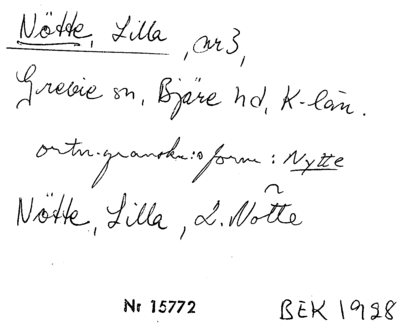 Nötte, Lilla, nr 3,
Grevie sn, Bjäre hd, K-län.
ortn.granskn:s form: Nytte
Nötte, Lilla, L. Nõtte
Nr 15772 BEK 1928